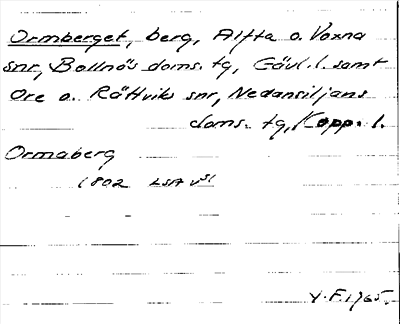 Ormberget, berg, Alfta o. Voxna
snr, Bollnäs doms. tg, Gävl. l. samt
Ore o. Rättviks snr, Nedansiljans
doms. tg, Kopp. l.
Ormaberg
1802 LSA
Y. F. 1965.